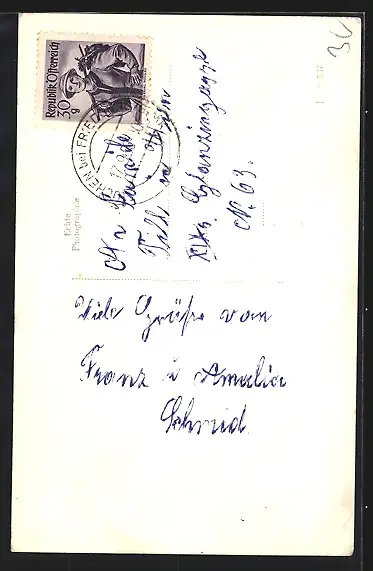 Republik Österreich
30 g
CHEN bei FRIED
Echte
Photographie
An Familie
Till in Wien
XIX. Glanzinggasse
N. 63.
Viele Grüße von
Franz u Amalia
Schmid
30